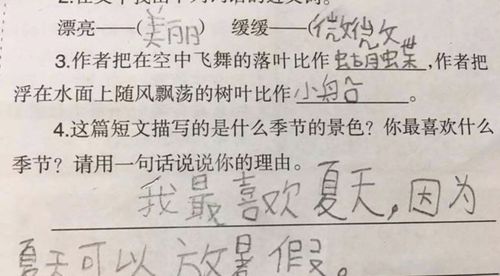 漂亮——(美丽) 缓缓——(微微)
3.作者把在空中飞舞的落叶比作蝴蝶,作者把
浮在水面上随风飘荡的树叶比作小船。
4.这篇短文描写的是什么季节的景色?你最喜欢什么
季节?请用一句话说说你的理由。
我最喜欢夏天,因为
夏天可以放暑假。